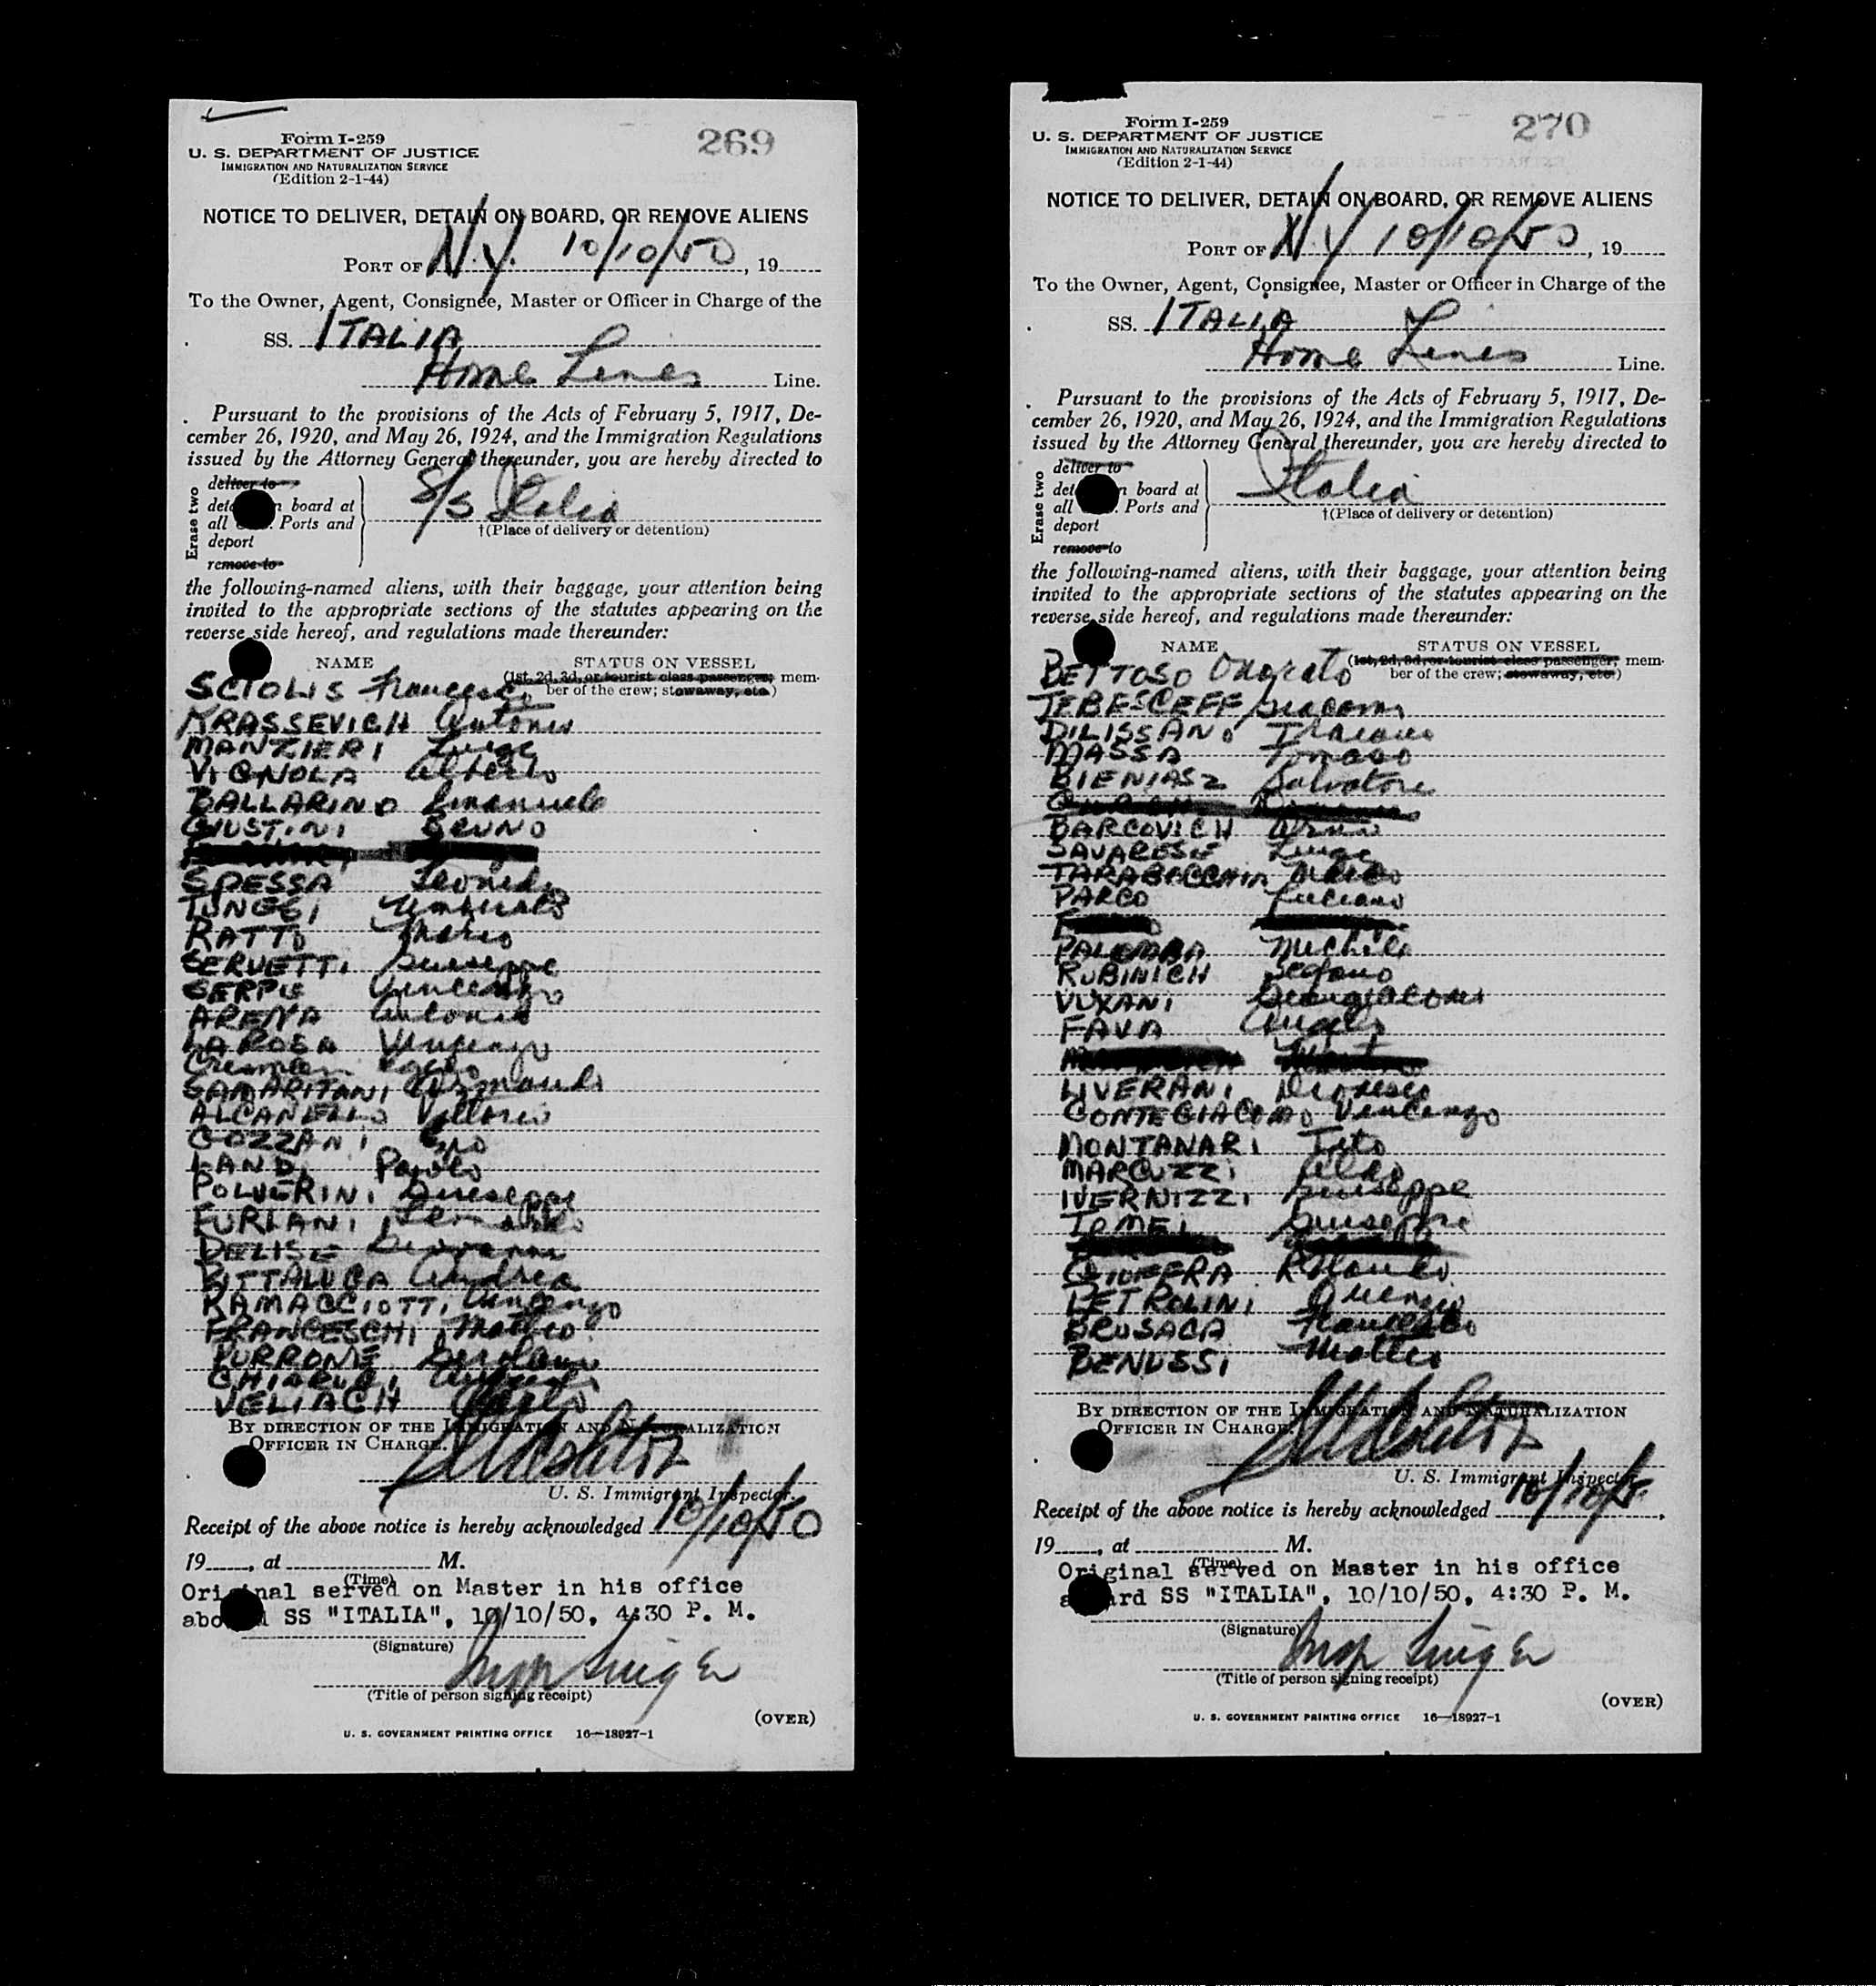 Form I-259
269
U. S. DEPARTMENT OF JUSTICE
IMMIGRATION AND NATURALIZATION SERVICE
(Edition 2-1-44)
NOTICE TO DELIVER, DETAIN ON BOARD, OR REMOVE ALIENS
PORT OF N.Y. 10/10/50, 19
To the Owner, Agent, Consignee, Master or Officer in Charge of the
SS. ITALIA
Home Lines Line.
Pursuant to the provisions of the Acts of February 5, 1917, De-
cember 26, 1920, and May 26, 1924, and the Immigration Regulations
issued by the Attorney General thereunder, you are hereby directed to
Erase two
deliver to
board at
all Ports and
deport
remove to
S/S Italia
†(Place of delivery or detention)
the following-named aliens, with their baggage, your attention being
invited to the appropriate sections of the statutes appearing on the
reverse side hereof, and regulations made thereunder:
NAME STATUS ON VESSEL
(1st, 2d, 3d, or tourist class passenger; mem-
ber of the crew; stowaway, etc.)
SCIOLIS Francesco
KRASSEVICH Antonio
MANZIERI Luigi
VIGNOLA Alberto
BALLARINO Emanuele
GIUSTINI BRUNO
SPESSA
TONGSI Umberto
RATTO Mario
SERVETTI Giuseppe
SERPE Vincenzo
ARENA Antonio
LAROSA Vincenzo
SAMARITANI Armando
ALCANELLO Vittorio
GOZZANI
LANDI Paolo
POLVERINI Giuseppe
FURLANI
DELISE Giovanni
BITTALUGA Andrea
RAMACCIOTTI Vincenzo
FRANCESCHI Matteo
PURRONE Girolamo
CHIARUGI
VELIACH Carlo
BY DIRECTION OF THE IMMIGRATION AND NATURALIZATION
OFFICER IN CHARGE.
U. S. Immigrant Inspector.
Receipt of the above notice is hereby acknowledged 10/10/50
19, at M.
(Time)
Original served on Master in his office
SS "ITALIA", 10/10/50, 4:30 P. M.
(Signature)
(Title of person signing receipt)
(OVER)
U. S. GOVERNMENT PRINTING OFFICE 16—18927-1
Form I-259
270
U. S. DEPARTMENT OF JUSTICE
IMMIGRATION AND NATURALIZATION SERVICE
(Edition 2-1-44)
NOTICE TO DELIVER, DETAIN ON BOARD, OR REMOVE ALIENS
PORT OF N.Y 10/10/50, 19
To the Owner, Agent, Consignee, Master or Officer in Charge of the
SS. ITALIA
Home Lines Line.
Pursuant to the provisions of the Acts of February 5, 1917, De-
cember 26, 1920, and May 26, 1924, and the Immigration Regulations
issued by the Attorney General thereunder, you are hereby directed to
Erase two
deliver to
board at
all Ports and
deport
remove to
Italia
†(Place of delivery or detention)
the following-named aliens, with their baggage, your attention being
invited to the appropriate sections of the statutes appearing on the
reverse side hereof, and regulations made thereunder:
NAME STATUS ON VESSEL
(1st, 2d, 3d, or tourist class passenger; mem-
ber of the crew; stowaway, etc.)
BETTOSO Onorato
TEBESCEFF Giacomo
DILISSANO
MASSA Tomaso
BIENIASZ Salvatore
BARCOVICH
SAVARESE Luigi
TARABOCCHIA
PARCO Luciano
PALOMBA Michele
RUBINICH Stefano
VUXANI Giangiacomo
FAVA Angelo
LIVERANI
CONTEGIACOMO Vincenzo
MONTANARI Tito
MARCUZZI Aldo
IVERNIZZI Giuseppe
TOMEI Giuseppe
Rolando
PETROLINI
BRUSACA Francesco
BENUSSI Matteo
BY DIRECTION OF THE IMMIGRATION AND NATURALIZATION
OFFICER IN CHARGE.
U. S. Immigrant Inspector.
Receipt of the above notice is hereby acknowledged 10/10/50,
19, at M.
(Time)
Original served on Master in his office
SS "ITALIA", 10/10/50, 4:30 P. M.
(Signature)
(Title of person signing receipt)
(OVER)
U. S. GOVERNMENT PRINTING OFFICE 16—18927-1